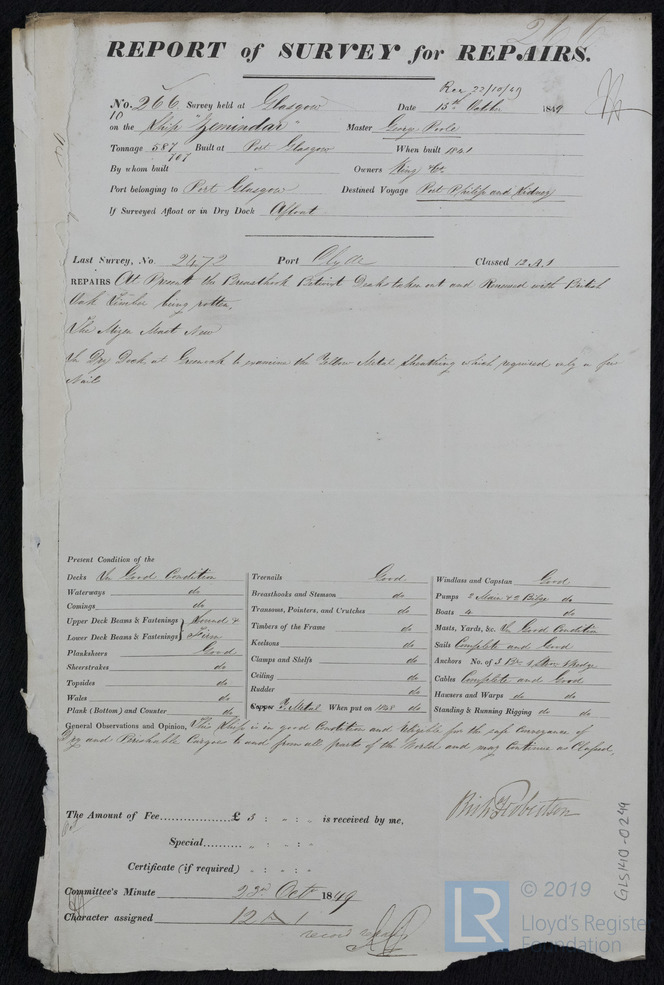 266
REPORT of SURVEY for REPAIRS.
Rec 22/10/49
No. 266 Survey held at Glasgow Date 15th October 1849
10
on the Ship "Zemindar" Master George Poole
Tonnage 587 Built at Port Glasgow When built 1841
707
By whom built Owners King &Co
Port belonging to Port Glasgow Destined Voyage Port Philip and Sidney
If Surveyed Afloat or in Dry Dock Afloat
Last Survey, No. 2472 Port Clyde Classed 12 A.1
REPAIRS At Present the Breasthook Betwixt Decks taken out and Renewed with British
Oak Timber being rotten,
The Mizen Mast New
In Dry Dock at Greenock to examine the Yellow Metal Sheathing which required only a few
Nails
Present Condition of the
Decks In Good Condition
Waterways do
Comings do
Upper Deck Beams & Fastenings } Sound &
Lower Deck Beams & Fastenings } Firm
Planksheers Good
Sheerstrakes do
Topsides do
Wales do
Plank (Bottom) and Counter do
Treenails Good
Breasthooks and Stemson do
Transoms, Pointers, and Crutches do
Timbers of the Frame do
Keelsons do
Clamps and Shelfs do
Ceiling do
Rudder do
Copper Y. Metal When put on 1848 do
Windlass and Capstan Good
Pumps 2 Main & 2 Bilge do
Boats 4 do
Masts, Yards, &c. In Good Condition
Sails Complete and Good
Anchors No. of 3 Br 1 Strm 1 Kedge
Cables Complete and Good
Hawsers and Warps do do
Standing & Running Rigging do do
General Observations and Opinion, This Ship is in good Condition and Eligible for the safe Conveyance of
Dry and Perishable Cargoes to and from all parts of the World and may Continue as Classed,
The Amount of Fee £ 3 : " : " is received by me,
Robertson
Special " : " : "
Certificate (if required) " : " : "
Committee's Minute 23rd Octr 1849
Character assigned 12 A 1
GLS1410-0249
LR
© 2019
Lloyd's Register
Foundation